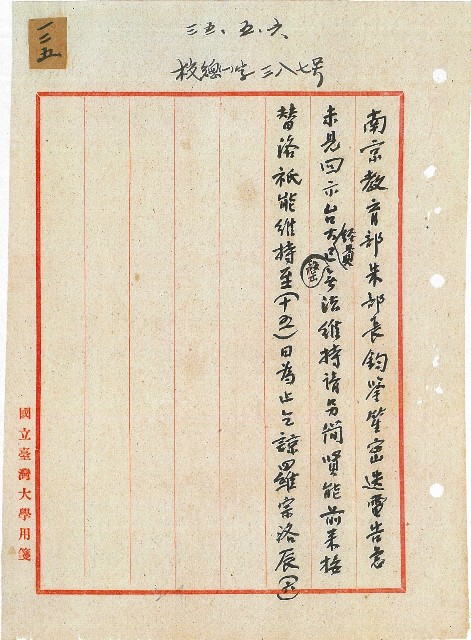 一三五
三五.五.六
校總一字三八七号
南京教育部朱部長鈞鑒密迭電告急
未見回示台大經費已罄無法維持請另简賢能前来接
替洛祇能維持至(十五)日為止乞諒羅宗洛辰(六)
國立臺灣大學用箋